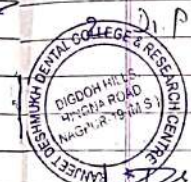 2 Dr. P
RANJEET DESHMUKH DENTAL COLLEGE & RESEARCH CENTRE
DIGDOH HILLS
HINGNA ROAD
NAGPUR-19 (M S)